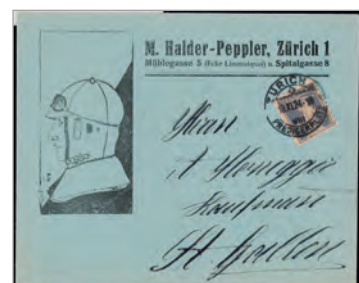 M. Halder-Peppler, Zürich 1
Mühlegasse 5 (Ecke Limmatquai) u. Spitalgasse 8
ZÜRICH
XI.24.-18
PREDIGERPLATZ
Herrn
A Honegger
Kaufmann
St Gallen